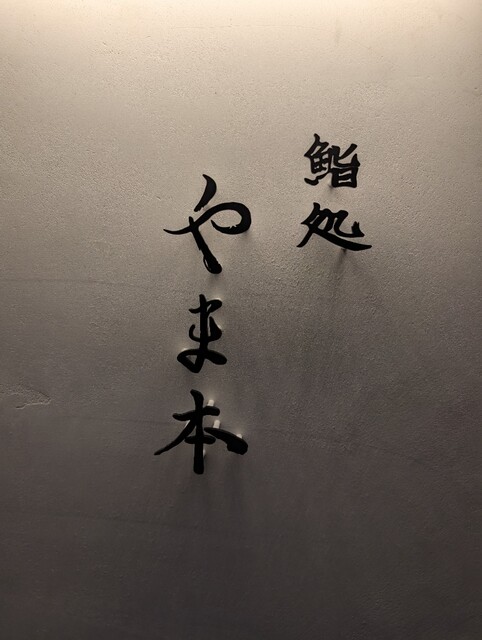 鮨処
やま本